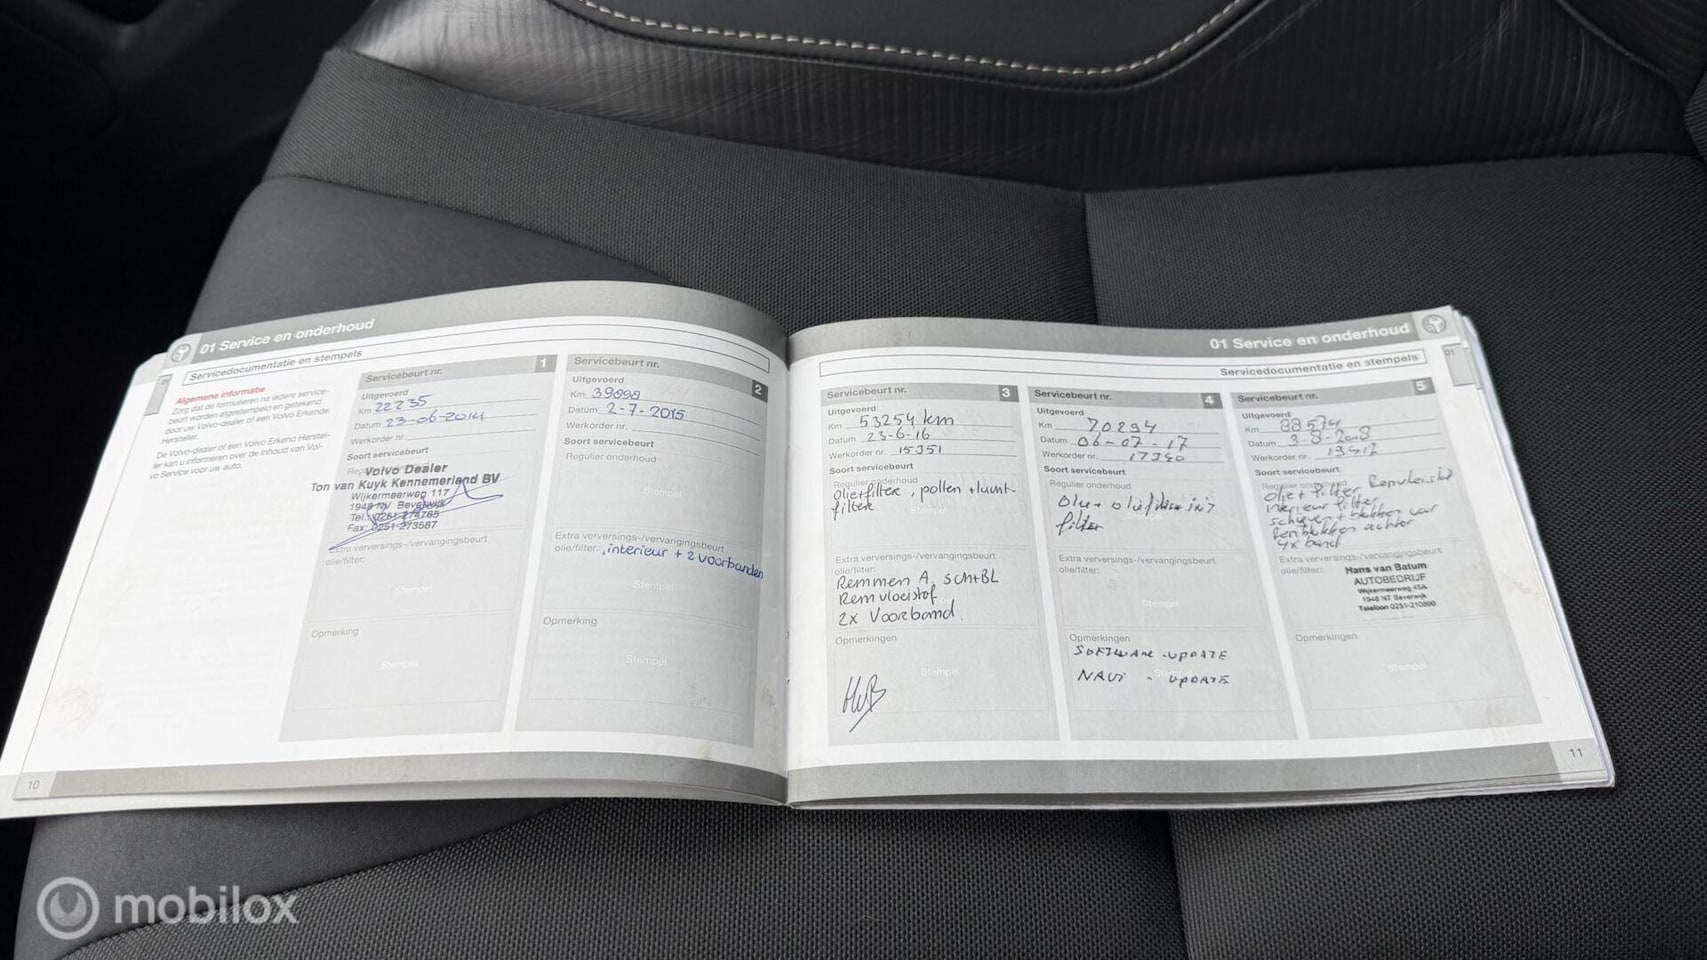 01 Service en onderhoud
Servicedocumentatie en stempels
Algemene informatie
Zorg dat de formulieren na iedere service-
beurt worden afgestempeld en getekend
door uw Volvo-dealer of een Volvo Erkende
Hersteller.
De Volvo-dealer of een Volvo Erkend Herstel-
ler kan u informeren over de inhoud van Vol-
vo Service voor uw auto.
Servicebeurt nr. 1
Uitgevoerd
Km 22235
Datum 23-06-2014
Werkorder nr.
Soort servicebeurt
Volvo Dealer
Ton van Kuyk Kennemerland BV
Wijkermeerweg 117
1948 NV Beverwijk
Tel.: 0251-274765
Fax: 0251-273587
Extra verversings-/vervangingsbeurt
olie/filter:
Stempel
Opmerking
Stempel
10
Servicebeurt nr. 2
Uitgevoerd
Km
Datum 2-7-2015
Werkorder nr.
Soort servicebeurt
Regulier onderhoud
Stempel
Extra verversings-/vervangingsbeurt
olie/filter: interieur + 2 voorbanden
Stempel
Opmerking
Stempel
01 Service en onderhoud
Servicedocumentatie en stempels
01
Servicebeurt nr. 3
Uitgevoerd
Km 53254 km
Datum 23-6-16
Werkorder nr. 15351
Soort servicebeurt
Regulier onderhoud
olie+filter, pollen + lucht-
filter
Stempel
Extra verversings-/vervangingsbeurt
olie/filter:
Remmen A. sch+BL
Remvloeistof
2x Voorband
Opmerkingen
Stempel
HvB
Servicebeurt nr. 4
Uitgevoerd
Km 70294
Datum 06-07-17
Werkorder nr. 17340
Soort servicebeurt
Regulier onderhoud
Olie + oliefilter int
filter
Extra verversings-/vervangingsbeurt
olie/filter:
Stempel
Opmerkingen
SOFTWARE - UPDATE
NAVI - UPDATE
Servicebeurt nr. 5
Uitgevoerd
Km 88574
Datum 3-8-2018
Werkorder nr. 19412
Soort servicebeurt
Regulier onderhoud
olie + filter Remvloeistof
interieur filter
schijven + blokken voor
Remblokken achter
4x band
Extra verversings-/vervangingsbeurt
olie/filter:
Hans van Batum
AUTOBEDRIJF
Wijkermeerweg 45A
1948 NT Beverwijk
Telefoon 0251-210890
Opmerkingen
Stempel
11
mobilox